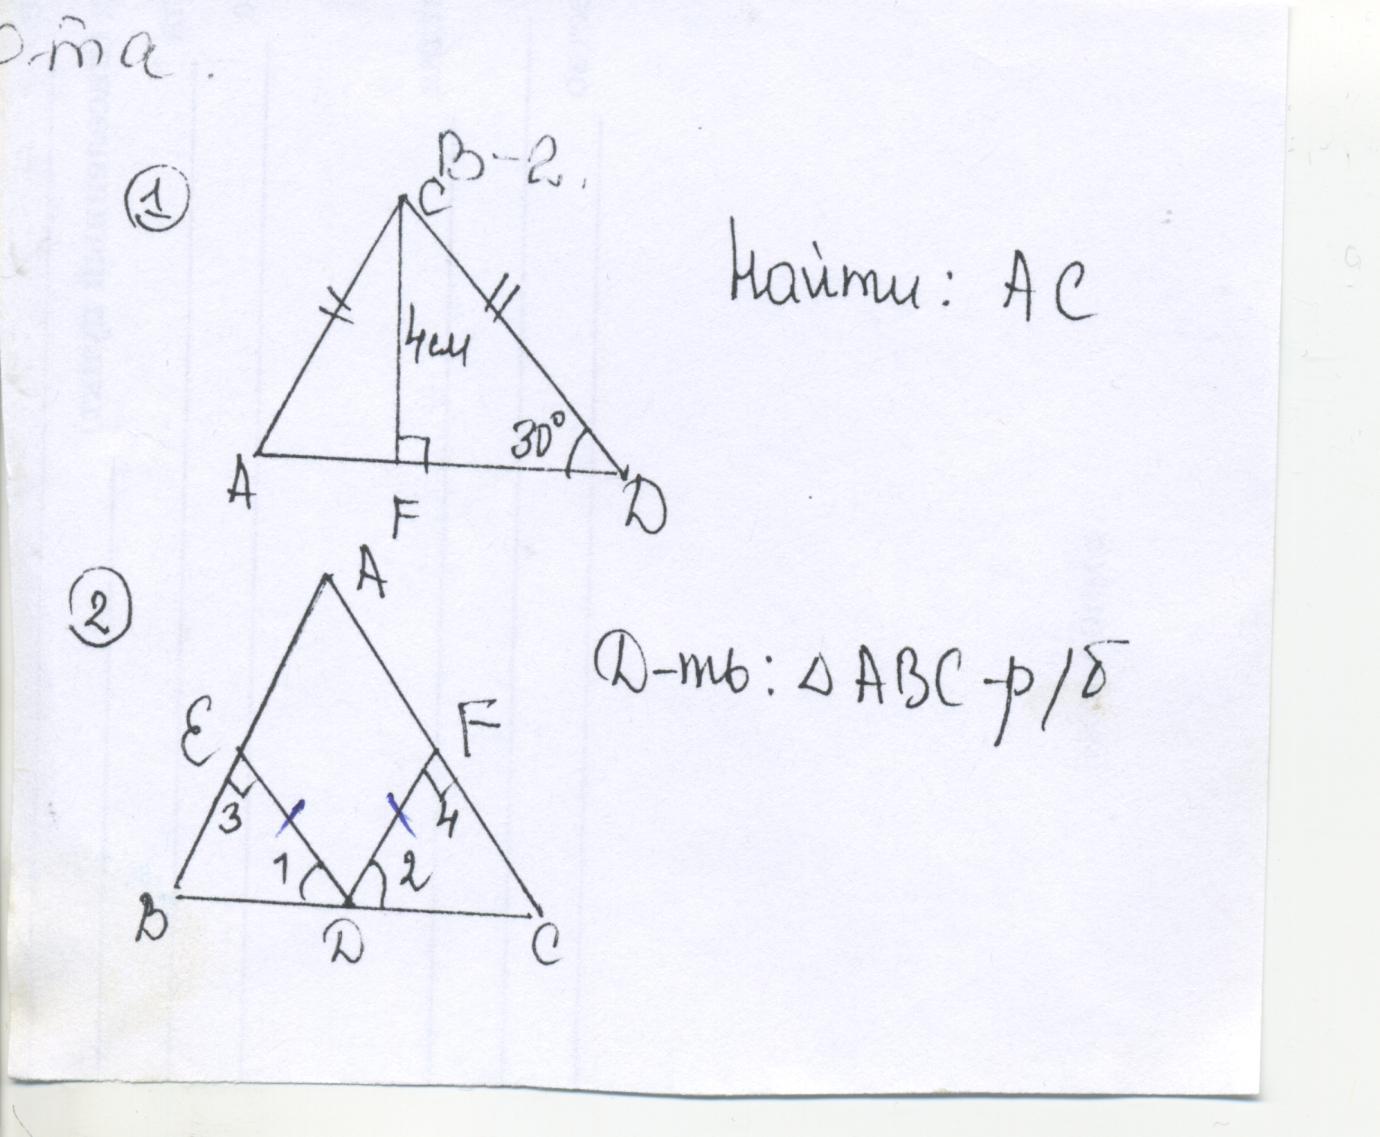 В-2.
1
C
Найти: АС
4см
30°
A
F
D
2
A
Д-ть: △ ABC -р/б
E
F
3
4
1
2
B
D
C